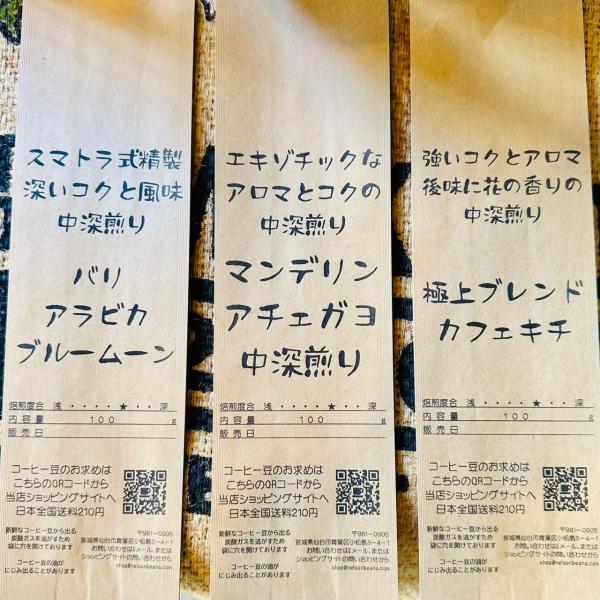 スマトラ式精製
深いコクと風味
中深煎り
バリ
アラビカ
ブルームーン
焙煎度合 浅 ・・・・★・・ 深
内容量 100 g
販売日
コーヒー豆のお求めは
こちらのQRコードから
当店ショッピングサイトへ
日本全国送料210円
新鮮なコーヒー豆から出る
炭酸ガスを逃がすため
袋に穴を開けております
コーヒー豆の油が
にじみ出ることがあります
〒981-0905
宮城県仙台市青葉区小松島3-4-1
お問い合わせはEメール、または
ショッピングサイトの問い合わせから
shop@nelsonbeans.com
エキゾチックな
アロマとコクの
中深煎り
マンデリン
アチェガヨ
中深煎り
焙煎度合 浅 ・・・・★・・ 深
内容量 100 g
販売日
コーヒー豆のお求めは
こちらのQRコードから
当店ショッピングサイトへ
日本全国送料210円
新鮮なコーヒー豆から出る
炭酸ガスを逃がすため
袋に穴を開けております
コーヒー豆の油が
にじみ出ることがあります
〒981-0905
宮城県仙台市青葉区小松島3-4-1
お問い合わせはEメール、または
ショッピングサイトの問い合わせから
shop@nelsonbeans.com
強いコクとアロマ
後味に花の香りの
中深煎り
極上ブレンド
カフェキチ
焙煎度合 浅 ・・・・★・・ 深
内容量 100 g
販売日
コーヒー豆のお求めは
こちらのQRコードから
当店ショッピングサイトへ
日本全国送料210円
新鮮なコーヒー豆から出る
炭酸ガスを逃がすため
袋に穴を開けております
コーヒー豆の油が
にじみ出ることがあります
〒981-0905
宮城県仙台市青葉区小松島3-4-1
お問い合わせはEメール、または
ショッピングサイトの問い合わせから
shop@nelsonbeans.com